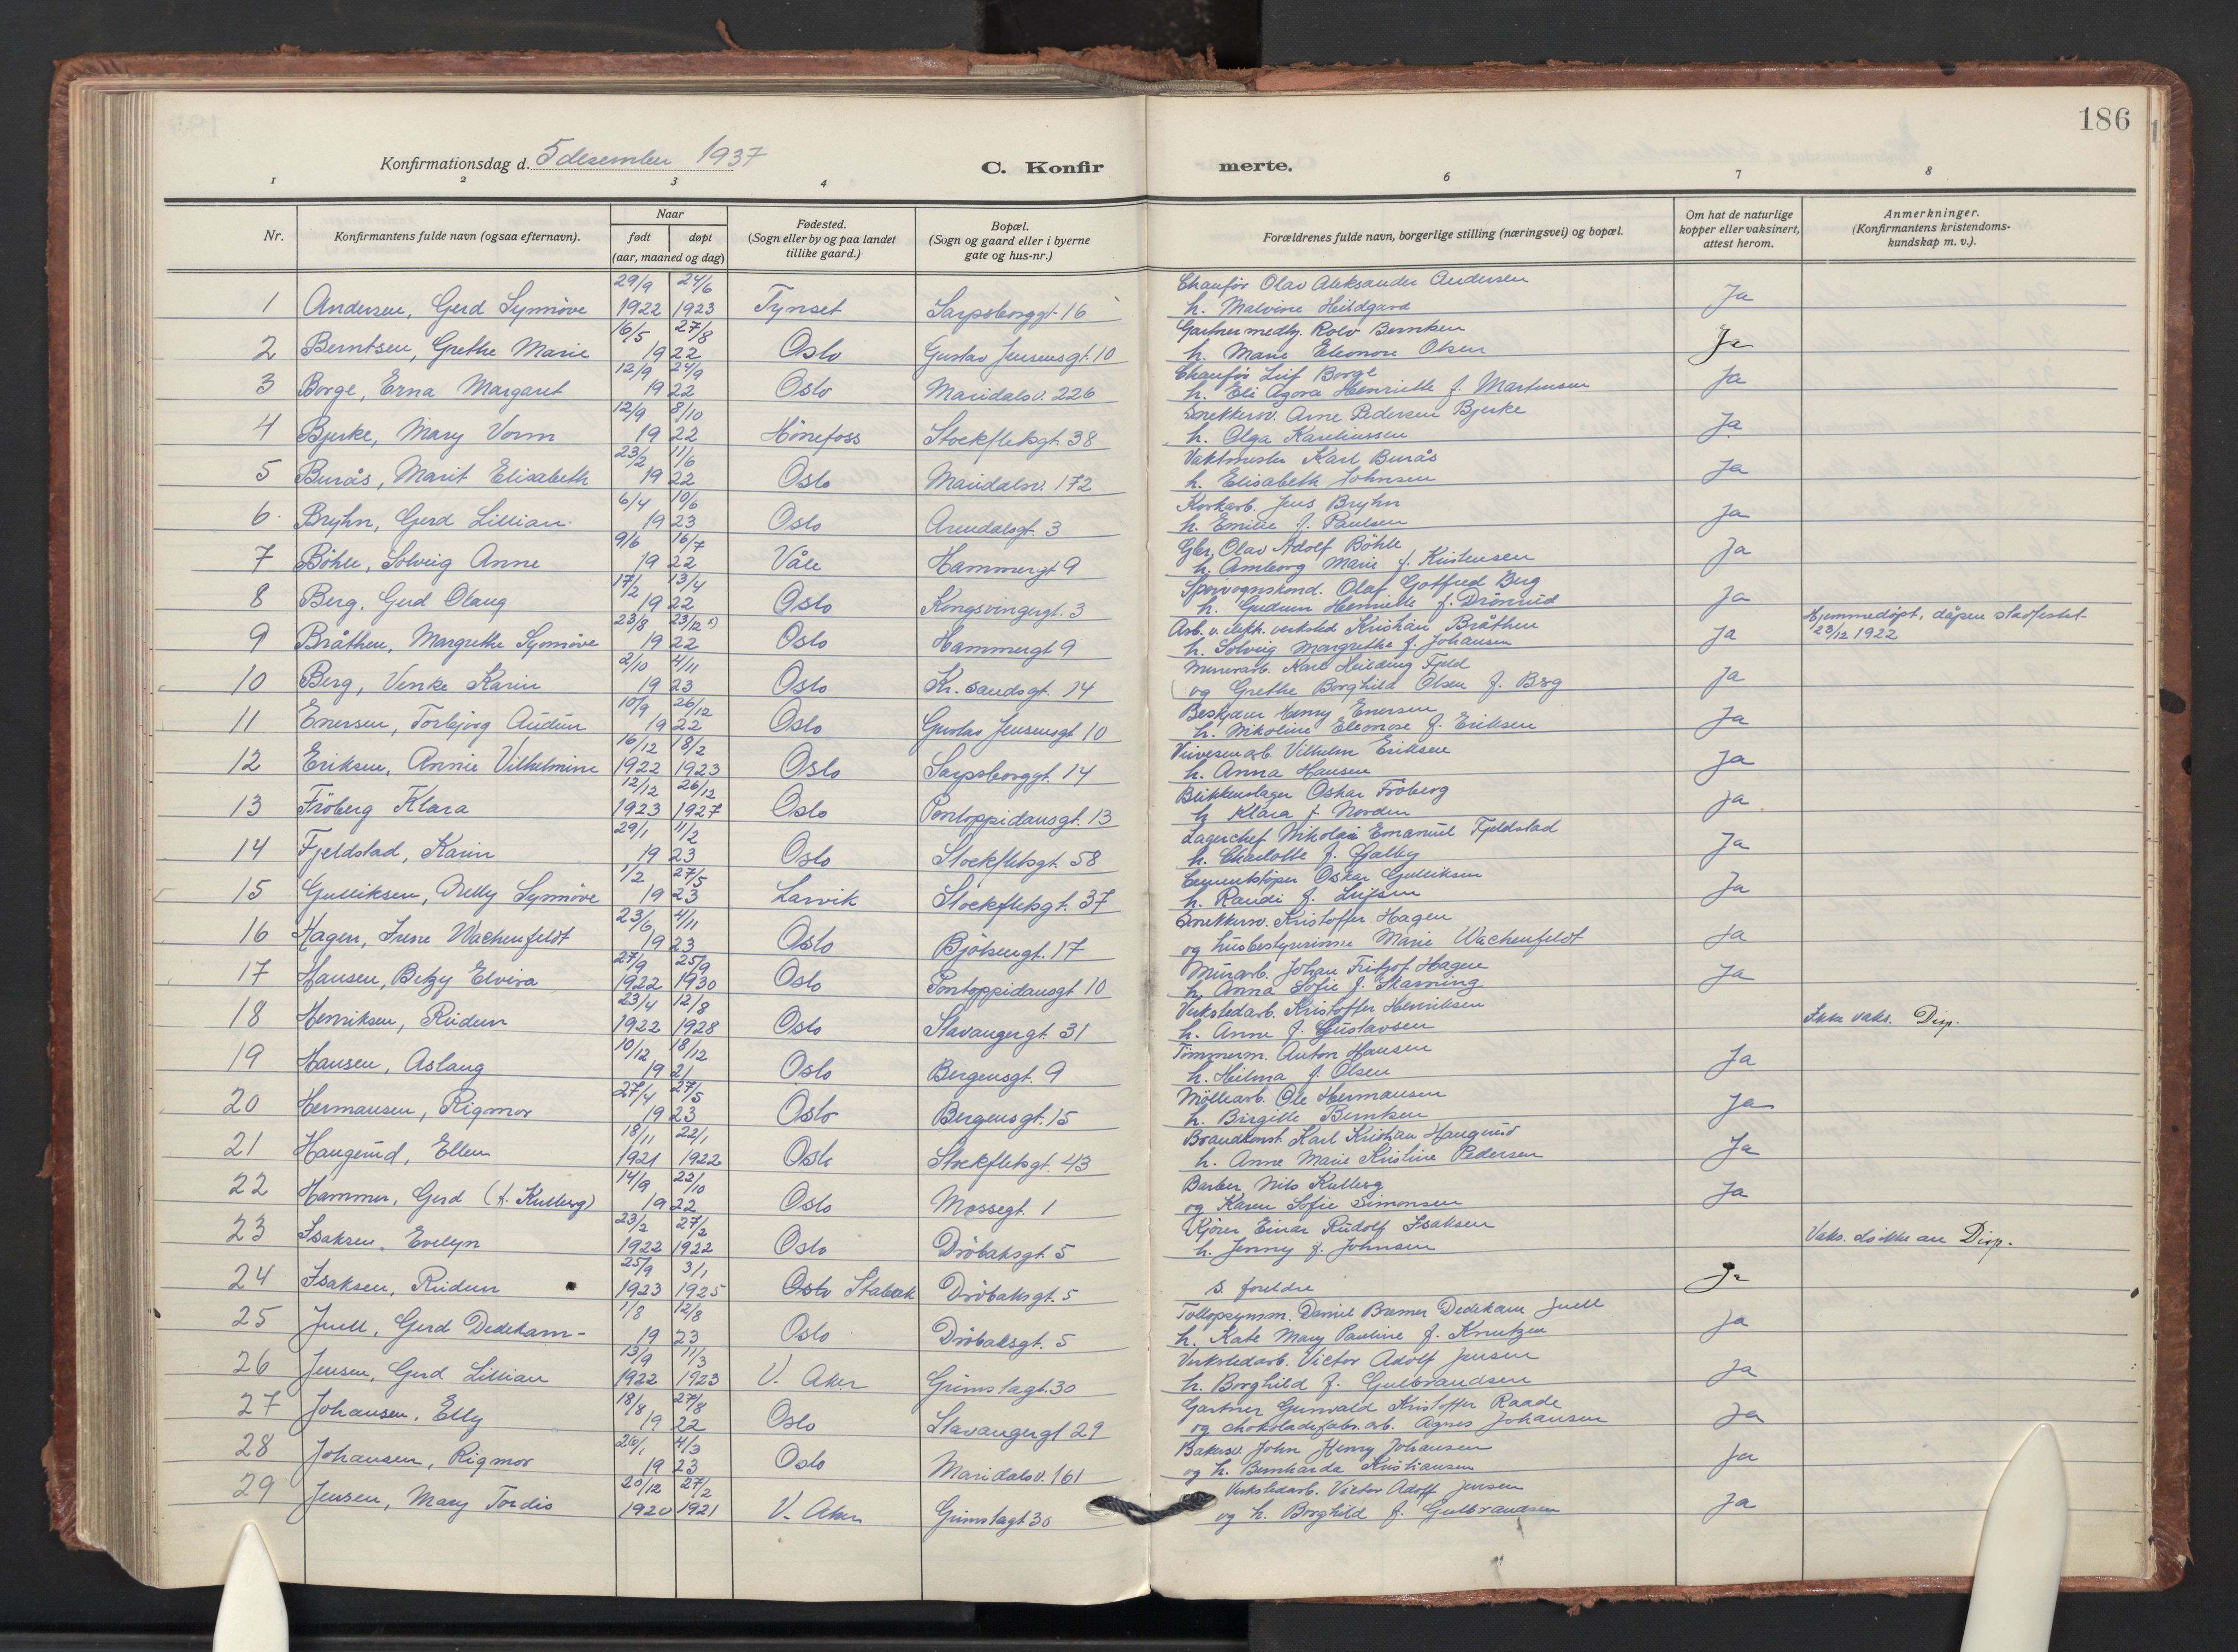 186
Konfirmationsdag d. 5 desember 1937
C. Konfirmerte.
1 2 3 4 6 7 8
Nr.
Konfirmantens fulde navn (ogsaa efternavn).
Naar
født døpt
(aar, maaned og dag)
Fødested.
(Sogn eller by og paa landet
tillike gaard.)
Bopæl.
(Sogn og gaard eller i byerne
gate og hus-nr.)
Forældrenes fulde navn, borgerlige stilling (næringsvei) og bopæl.
Om hat de naturlige
kopper eller vaksinert,
attest herom.
Anmerkninger.
(Konfirmantens kristendoms-
kundskap m. v.).
29/9 24/6 Chaufør Olav Aleksander Andersen
1 Andersen, Gerd Synnöve 1922 1923 Tynset Sarpsborggt. 16 h. Malvine Hildgard Ja
16/5 27/8 Gartnermedhj. Rolv Berntsen
2 Berntsen, Grethe Marie 1922 Oslo Gustav Jensensgt. 10 h. Marie Eleonore Olsen Ja
12/9 24/9 Chaufør Leif Borge
3 Borge, Erna Margaret 1922 Oslo Maridalsv. 226 h. Eli Agora Henriette f. Martinsen Ja
12/9 8/10 Snekkersv. Arne Pedersen Bjerke
4 Bjerke, Mary Vorm 1922 Hönefoss Stockfletsgt. 38 h. Olga Kareliussen Ja
23/2 11/6 Vaktmester Karl Burås
5 Burås, Marit Elisabeth 1922 Oslo Maridalsv. 172 h. Elisabeth Johnsen Ja
6/4 10/6 Korkarb. Jens Bryhn
6 Bryhn, Gerd Lillian 1923 Oslo Arendalsgt. 3 h. Emilie f. Paulsen Ja
9/6 16/7 Gbr. Olav Adolf Böhle
7 Böhle, Solveig Anne 1922 Våle Hammergt 9 h. Amborg Marie f. Kristensen Ja
17/2 13/4 Sporvognskond. Olaf Gotfred Berg
8 Berg, Gerd Olaug 1922 Oslo Kongsvingergt. 3 h. Gudrun Henriette f. Drönnid Ja
23/8 23/12 Arb. v. elekt. verksted Kristian Bråthen Hjemmedöpt, dåpen stadfestet
9 Bråthen, Margrethe Synnöve 1922 Oslo Hammergt 9 h. Solveig Margrethe f. Johansen Ja 23/12 1922
2/10 4/11 Murerarb. Karl Heilding Fjeld
10 Berg, Venke Karin 1923 Oslo Kr.sandsgt. 14 og Grethe Borghild Olsen f. Berg Ja
10/9 26/12 Beskjærer Henry Enersen
11 Enersen, Torbjörg Audun 1922 Oslo Gustav Jensensgt 10 h. Nikoline Eleonore f. Eriksen Ja
16/12 18/2 Veivesenarb. Vilhelm Eriksen
12 Eriksen, Annie Vilhelmine 1922 1923 Oslo Sarpsborggt. 14 h. Anna Hansen Ja
12/12 26/12 Blikkenslager Oskar Fröberg
13 Fröberg Klara 1923 1927 Oslo Pontoppidansgt. 13 h. Klara f. Norden Ja
29/1 11/2 Lagerchef Nikolai Emanuel Fjeldstad
14 Fjeldstad, Karin 1923 Oslo Stockfletsgt. 58 h. Charlotte f. Galby Ja
1/2 27/5 Cementstöper Oskar Gulliksen
15 Gulliksen, Nelly Synnöve 1923 Larvik Stockfletsgt. 37 h. Randi f. Leifsen Ja
23/6 4/11 Snekkersv. Kristoffer Hagen
16 Hagen, Irene Wachenfeldt 1923 Oslo Bjölsengt. 17 og husbestyrerinne Marie Wachenfeldt Ja
27/9 25/9 Murarb. Johan Fritjof Hagen
17 Hansen, Betzy Elvira 1922 1930 Oslo Pontoppidansgt 10 h. Anna Sofie f. Skarning Ja
23/4 12/8 Verkstedarb. Kristoffer Henriksen
18 Henriksen, Reidun 1922 1928 Oslo Stavangergt. 31 h. Anne f. Gustavsen Ikke vaks. Disp.
10/12 18/12 Tömmerm. Anton Hansen
19 Hansen, Aslaug 1921 Oslo Bergensgt. 9 h. Hilma f. Olsen Ja
27/4 27/5 Möllearb. Ole Hermansen
20 Hermansen, Rigmor 1923 Oslo Bergensgt. 15 h. Birgitte Berntsen Ja
18/11 22/1 Brandkonst. Karl Kristian Haugerud
21 Haugerud, Ellen 1921 1922 Oslo Stockfletsgt. 43 h. Anne Marie Kristine Pedersen Ja
14/9 22/10 Barber Nils Kullerg
22 Hammer, Gerd (f. Kullerg) 1922 Oslo Mossegt. 1 og Karen Sofie Simonsen Ja
23/2 27/2 Kjörer Einar Rudolf Isaksen
23 Isaksen, Evelyn 1922 1922 Oslo Dröbaksgt. 5 h. Jenny f. Johnsen Vaks. slo ikke an Disp.
25/9 3/1
24 Isaksen, Reidun 1923 1925 Oslo Stabæk Dröbaksgt. 5 s. foreldre Ja
1/8 12/8 Tollopsynsm. Daniel Bremer Dedekam Juell
25 Juell, Gerd Dedekam- 1923 Oslo Dröbaksgt. 5 h. Kate Mary Pauline f. Knutzen Ja
13/9 11/3 Verkstedarb. Victor Adolf Jensen
26 Jensen, Gerd Lillian 1922 1923 V. Aker Grimstagt. 30 h. Borghild f. Gulbrandsen Ja
18/8 27/8 Gartner Gunvald Kristoffer Raade
27 Johansen, Elly 1922 Oslo Stavangergt 29 og chokoladefabr.arb. Agnes Johansen Ja
26/1 4/3 Bakersv. John Henry Johansen
28 Johansen, Rigmor 1923 Oslo Maridalsv. 161 og h. Bernharda Kristiansen Ja
20/12 27/2 Verkstedarb. Victor Adolf Jensen
29 Jensen, Mary Tordis 1920 1921 V. Aker Grimstagt 30 og h. Borghild f. Gulbrandsen Ja